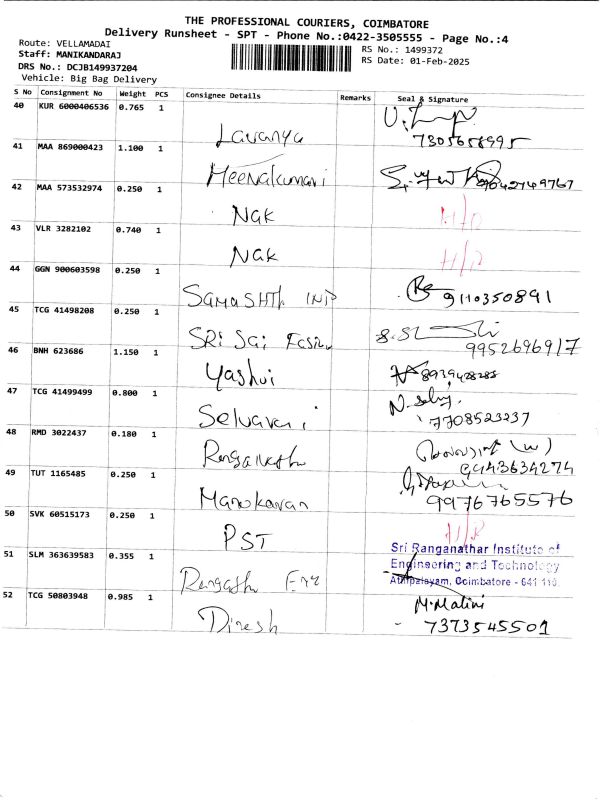 THE PROFESSIONAL COURIERS, COIMBATORE
Delivery Runsheet - SPT - Phone No.:0422-3505555 - Page No.:4
Route: VELLAMADAI
RS No.: 1499372
Staff: MANIKANDARAJ
RS Date: 01-Feb-2025
DRS No.: DCJB149937204
Vehicle: Big Bag Delivery
S No Consignment No Weight PCS Consignee Details Remarks Seal & Signature
40 KUR 6000406536 0.765 1 Lavanya
7305658995
41 MAA 869000423 1.100 1 Meenakumari
9042749767
42 MAA 573532974 0.250 1 Nak H/R
43 VLR 3282102 0.740 1 Nak H/R
44 GGN 900603598 0.250 1 SAMASHTI IND 9110350891
45 TCG 41498208 0.250 1 SRI Sai
9952696917
46 BNH 623686 1.150 1 Yashvi
47 TCG 41499499 0.800 1 Selvarani
7708523237
48 RMD 3022437 0.180 1
9443634274
49 TUT 1165485 0.250 1 Manokaran
9976765576
50 SVK 60515173 0.250 1 PST H/R
Sri Ranganathar Institute of
51 SLM 363639583 0.355 1 Engineering and Technology
Athipalayam, Coimbatore - 641 110
52 TCG 50803948 0.985 1 Dinesh M. Malini
7373545501